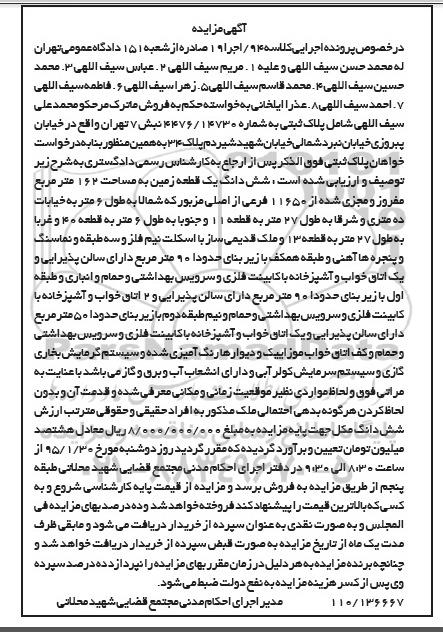 آگهی مزایده
در خصوص پرونده اجرایی کلاسه ۹۴/اجرا/۱۹ صادره از شعبه ۱۵۱ دادگاه عمومی تهران
له محمد حسن سیف اللهی و علیه ۱. مریم سیف اللهی ۲. عباس سیف اللهی ۳. محمد
حسین سیف اللهی ۴. محمد قاسم سیف اللهی ۵. زهرا سیف اللهی ۶. فاطمه سیف اللهی
۷. احمد سیف اللهی ۸. عذرا ایلخانی به خواسته حکم به فروش ماترک مرحوم محمد علی
سیف اللهی شامل پلاک ثبتی به شماره ۴۴۷۶/۱۴۷۳۰ نبش ۷ تهران واقع در خیابان
پیروزی خیابان نبرد شمالی خیابان شهید شیردم پلاک ۳۴ به همین منظور بنا به درخواست
خواهان پلاک ثبتی فوق الذکر پس از ارجاع به کارشناس رسمی دادگستری به شرح زیر
توصیف و ارزیابی شده است : شش دانگ یک قطعه زمین به مساحت ۱۶۲ متر مربع
مفروز و مجزی شده از ۱۱۶۵۰ فرعی از اصلی مزبور که شمالا به طول ۶ متر به خیابات
ده متری و شرقا به طول ۲۷ متر به قطعه ۱۱ و جنوبا به طول ۶ متر به قطعه ۴۰ و غربا
به طول ۲۷ متر به قطعه ۱۳ و ملک قدیمی ساز با اسکلت نیم فلز و سه طبقه و نماسنگ
و پنجره ها آهنی و طبقه همکف با زیر بنای حدودا ۹۰ متر مربع دارای سالن پذیرایی و
یک اتاق خواب و آشپزخانه با کابینت فلزی و سرویس بهداشتی و حمام و انباری و طبقه
اول با زیر بنای حدودا ۹۰ متر مربع دارای سالن پذیرایی و ۲ اتاق خواب و آشپزخانه با
کابینت فلزی و سرویس بهداشتی و حمام و نیم طبقه دوم با زیر بنای حدودا ۵۰ متر مربع
دارای سالن پذیرایی و یک اتاق خواب و آشپزخانه با کابینت فلزی و سرویس بهداشتی
و حمام و کف اتاق خواب موزاییک و دیوارها رنگ آمیزی شده و سیستم گرمایش بخاری
گازی و سیستم سرمایش کولر آبی و دارای انشعاب آب و برق و گاز می باشد با عنایت به
مراتی فوق و لحاظ مواردی نظیر موقعیت زمانی و مکانی معرفی شده و قدمت آن و بدون
لحاظ کردن هرگونه بدهی احتمالی ملک مذکور به افراد حقیقی و حقوقی مترتب ارزش
شش دانگ مکل جهت پایه مزایده به مبلغ ۸/۰۰۰/۰۰۰/۰۰۰ ریال معادل هشتصد
میلیون تومان تعیین و برآورد گردیده که مقرر گردید روز دوشنبه مورخ ۹۵/۱/۳۰ از
ساعت ۸:۳۰ الی ۹:۳۰ در دفتر اجرای احکام مدنی مجتمع قضایی شهید محلاتی طبقه
پنجم از طریق مزایده به فروش برسد و مزایده از قیمت پایه کارشناسی شروع و به
کسی که بالاترین قیمت را پیشنهاد کند فروخته خواهد شد و ده درصد بهای مزایده فی
المجلس و به صورت نقدی به عنوان سپرده از خریدار دریافت می شود و مابقی ظرف
مدت یک ماه از تاریخ مزایده به صورت قبض سپرده از خریدار دریافت خواهد شد و
چنانچه برنده مزایده به هر دلیل در زمان مقرر بهای مزایده را نپردازد ده درصد سپرده
وی پس از کسر هزینه مزایده به نفع دولت ضبط می شود.
۱۱۰/۱۳۶۶۶۷ مدیر اجرای احکام مدنی مجتمع قضایی شهید محلاتی